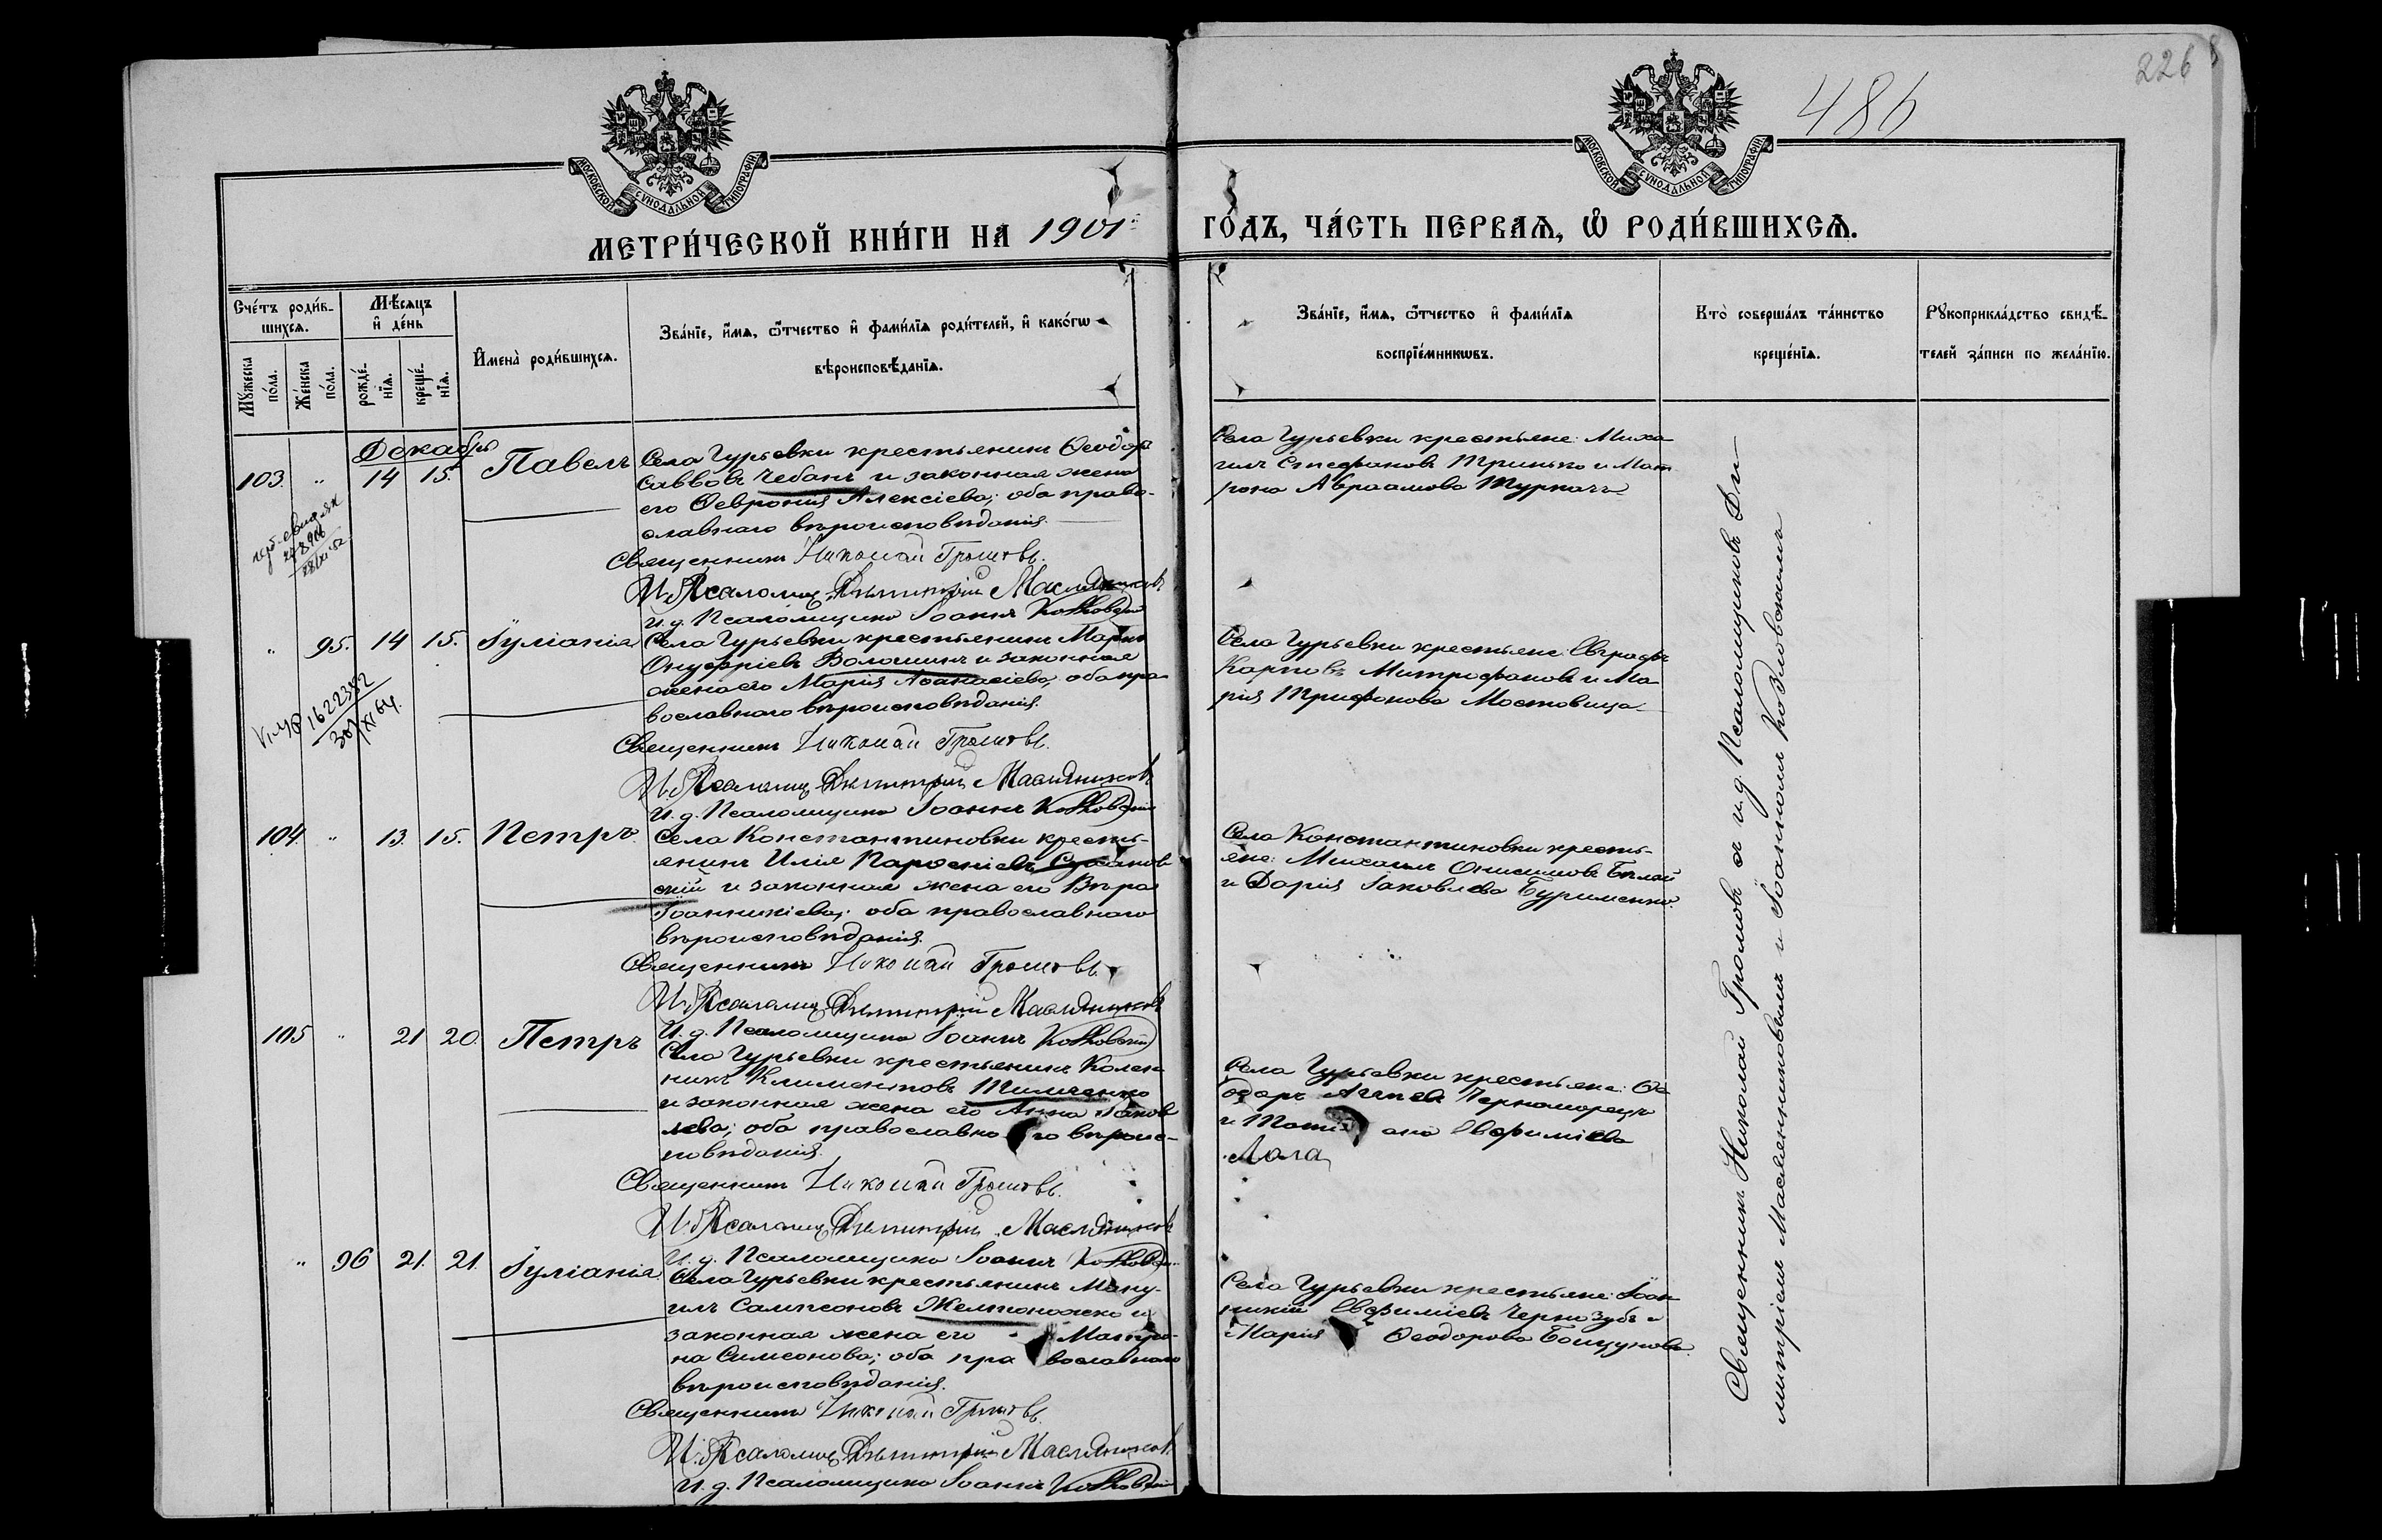 226
486
МОСКОВСКОЙ СѴНОДАЛЬНОЙ ТИПОГРАФІИ
МОСКОВСКОЙ СѴНОДАЛЬНОЙ ТИПОГРАФІИ
МЕТРИ́ЧЕСКОЙ КНИ́ГИ НА 1901
ГО́ДЪ, ЧА́СТЬ ПЕРВАѦ, Ѡ҆ РОДИ́ВШИХСѦ.
Сче́тъ роди́в-
шихсѧ.
Мѣ́сѧцъ
и҆ де́нь
Мꙋ́жеска
по́ла.
Же́нска
по́ла.
рожде́-
нїѧ.
креще́-
нїѧ.
И҆мена̀ роди́вшихсѧ.
Зва́нїе, и҆́мѧ, ѻ҆́тчество и҆ фами́лїѧ роди́телей, и҆ како́гѡ
вѣроисповѣ́данїѧ.
Зва́нїе, и҆́мѧ, ѻ҆́тчество и҆ фами́лїѧ
воспрїе́мникѡвъ.
Кто̀ соверша́лъ та́инство
креще́нїѧ.
Рꙋкоприкла́дство свидѣ́-
телей за́писи по жела́нїю.
Декабрь
103. " 14 15. Павелъ
Села Гурьевки крестьянинъ Ѳеодоръ
Саввовъ Чебанъ и законная жена
его Ѳеврония Алексіева; оба право-
славнаго вѣроисповѣданія.
Священникъ Николай Громовъ.
И. д. Псаломщ. Димитрій Маслянниковъ
И. д. Псаломщика Іоаннъ Козловскій
Села Гурьевки крестьяне: Миха
илъ Стефановъ Тринько и Мат
рона Авраамова Туркачъ
" 95. 14 15. Іуліанія
1622382
30/XI 64.
Села Гурьевки крестьянинъ Маркъ
Онуфріевъ Волошинъ и законная
жена его Марія Аѳанасіева; оба пра
вославнаго вѣроисповѣданія.
Священникъ Николай Громовъ.
И. д. Псаломщ. Димитрій Маслянниковъ
И. д. Псаломщика Іоаннъ Козловскій
Села Гурьевки крестьяне: Евграфъ
Карповъ Митрофановъ и Ма
рія Трифонова Мостовица
104. " 13. 15. Петръ.
Села Константиновки кресть-
янинъ Илія Парѳеніевъ
скій и законная жена его Вѣра
Іоанникіева; оба православнаго
вѣроисповѣданія.
Священникъ Николай Громовъ
И. д. Псаломщ. Димитрій Маслянниковъ
И. д. Псаломщика Іоаннъ Козловскій
Села Константиновки кресть-
яне: Михаилъ Онисимовъ Бѣлый
и Дарія Іаковлева Бурименко.
105 " 21 20. Петръ
Села Гурьевки крестьянинъ
Климентовъ Тимченко
и законная жена его Анна Іаков
лева; оба православнаго вѣроис-
повѣданія.
Священникъ Николай Громовъ.
И. д. Псаломщ. Димитрій Маслянниковъ
И. д. Псаломщика Іоаннъ Козловскій
Села Гурьевки крестьяне: Ѳе
одоръ Черноморецъ
и Татіана Евѳиміева
Лола
" 96 21. 21. Іуліанія
Села Гурьевки крестьянинъ Ману-
илъ Сампсоновъ Желтоножко и
законная жена его Матро-
на Симеонова; оба православнаго
вѣроисповѣданія.
Священникъ Николай Громовъ.
И. д. Псаломщ. Димитрій Маслянниковъ
И. д. Псаломщика Іоаннъ Козловскій
Села Гурьевки крестьяне: Іоан
никій Евѳиміевъ Чернозубъ и
Марія Ѳеодорова Бощунова.
Священникъ Николай Громовъ съ и. д. Псаломщиковъ Ди-
митріемъ Маслянниковымъ и Іоанномъ Козловскимъ